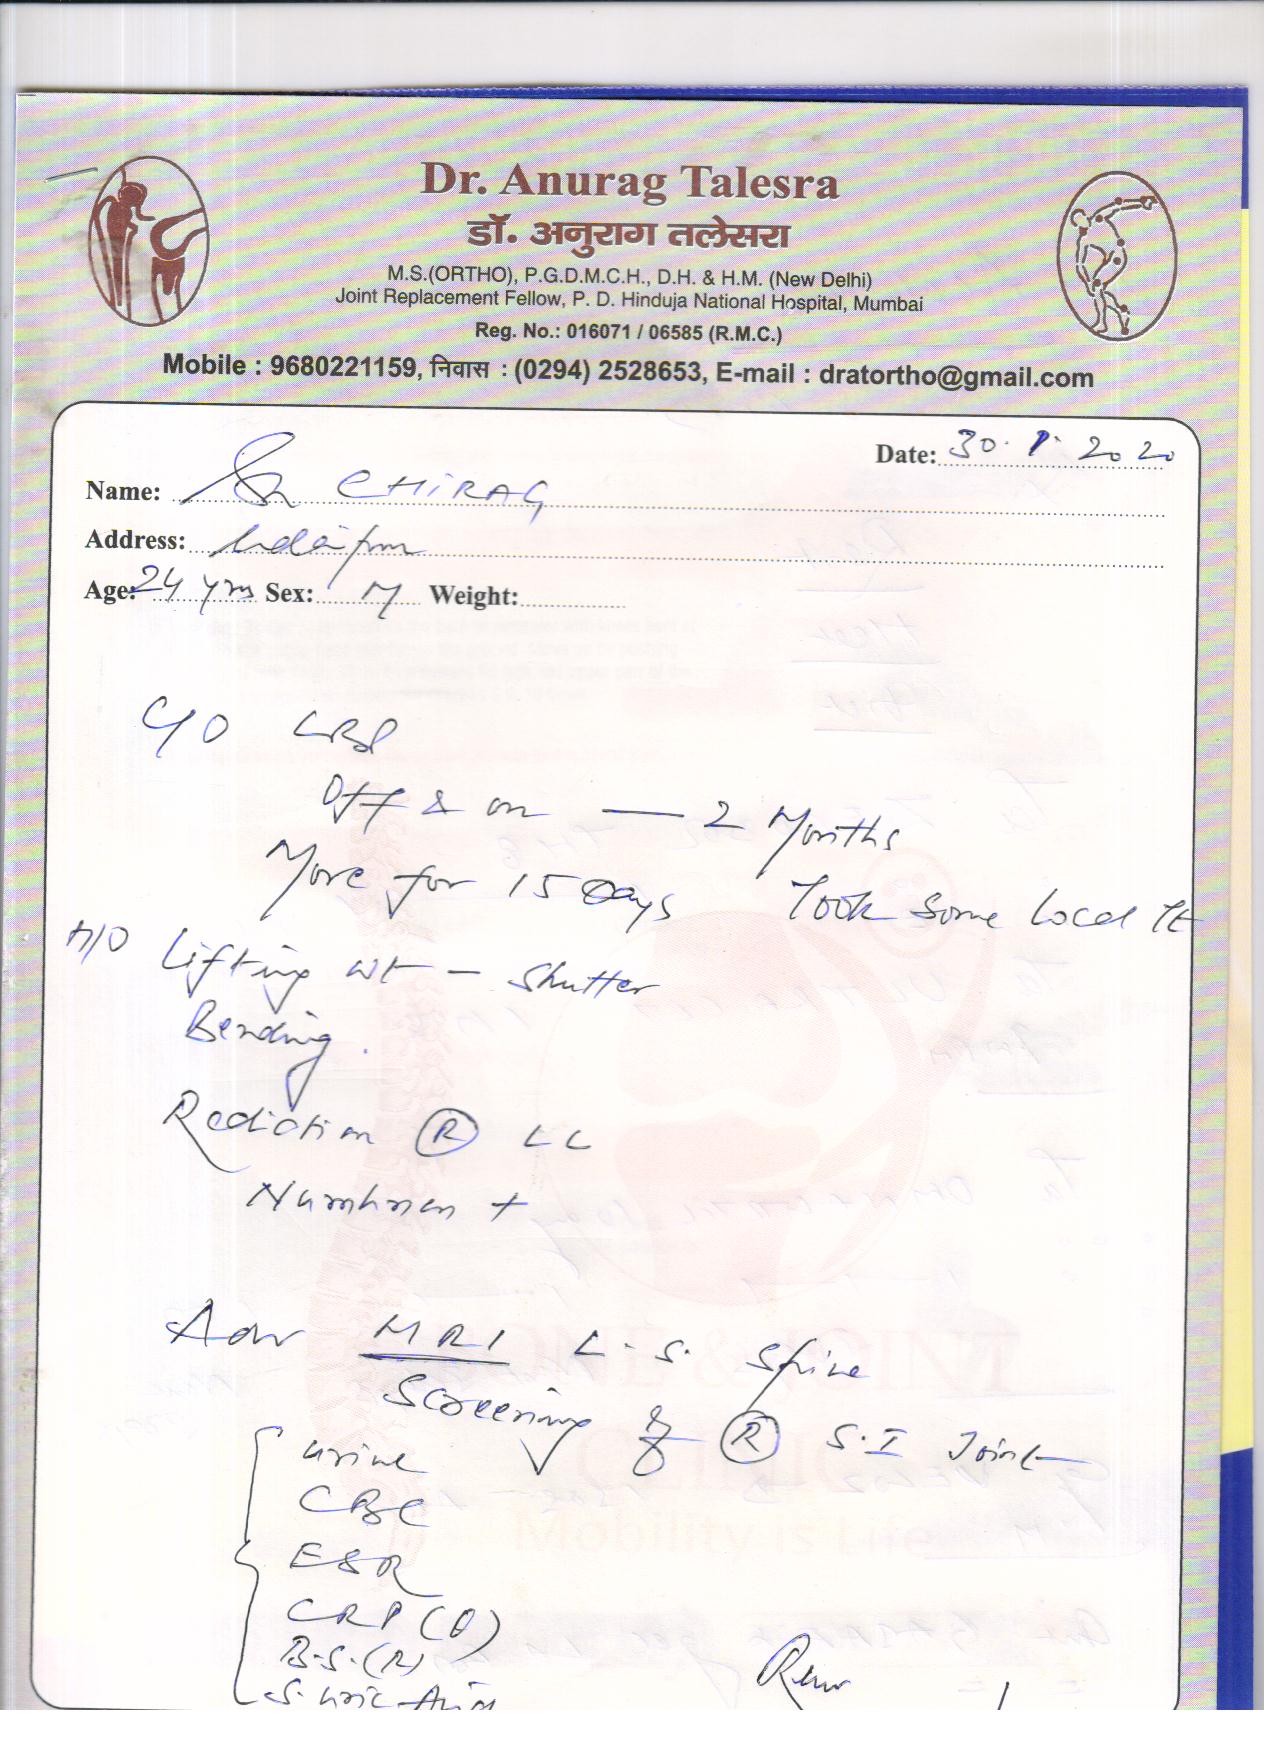 Dr. Anurag Talesra
डॉ. अनुराग तलेसरा
M.S.(ORTHO), P.G.D.M.C.H., D.H. & H.M. (New Delhi)
Joint Replacement Fellow, P. D. Hinduja National Hospital, Mumbai
Reg. No.: 016071 / 06585 (R.M.C.)
Mobile : 9680221159, निवास : (0294) 2528653, E-mail : dratortho@gmail.com
Date: 30. 1. 2020
Name: CHIRAG
Address: Udaipur
Age: 24 yrs Sex: M Weight:
C/O LBP
Off & on — 2 Months
More for 15 Days Took some local Tt
H/O Lifting wt — Shutter
Bending.
Radiation (R) LL
Numbness +
Adv MRI L.S. Spine
Screening of (R) S.I Joint
Urine
CBC
ESR
CRP (Q)
B.S. (R)
S. Uric Acid
Mobility is Life